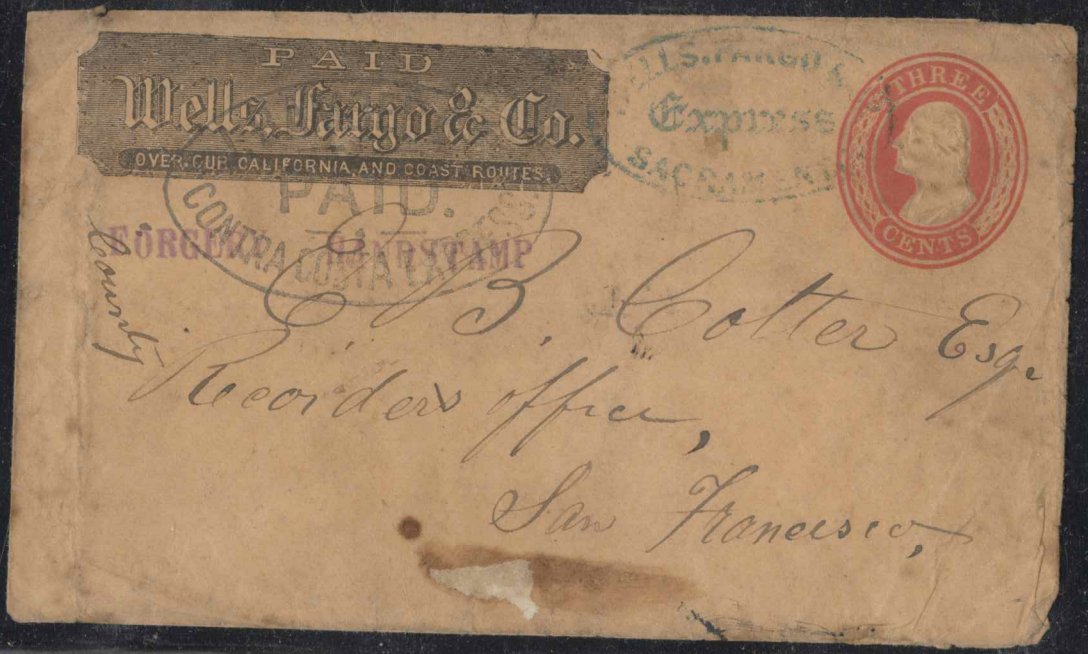 PAID
Wells, Fargo & Co.
OVER OUR CALIFORNIA AND COAST ROUTES.
WELLS, FARGO &
Express
SACRAMENTO
THREE
CENTS
PAID.
CONTRA COSTA EXPRESS.
FORGED HANDSTAMP
County
C. B. Cotter Esqr
Recorders office,
San Francisco,